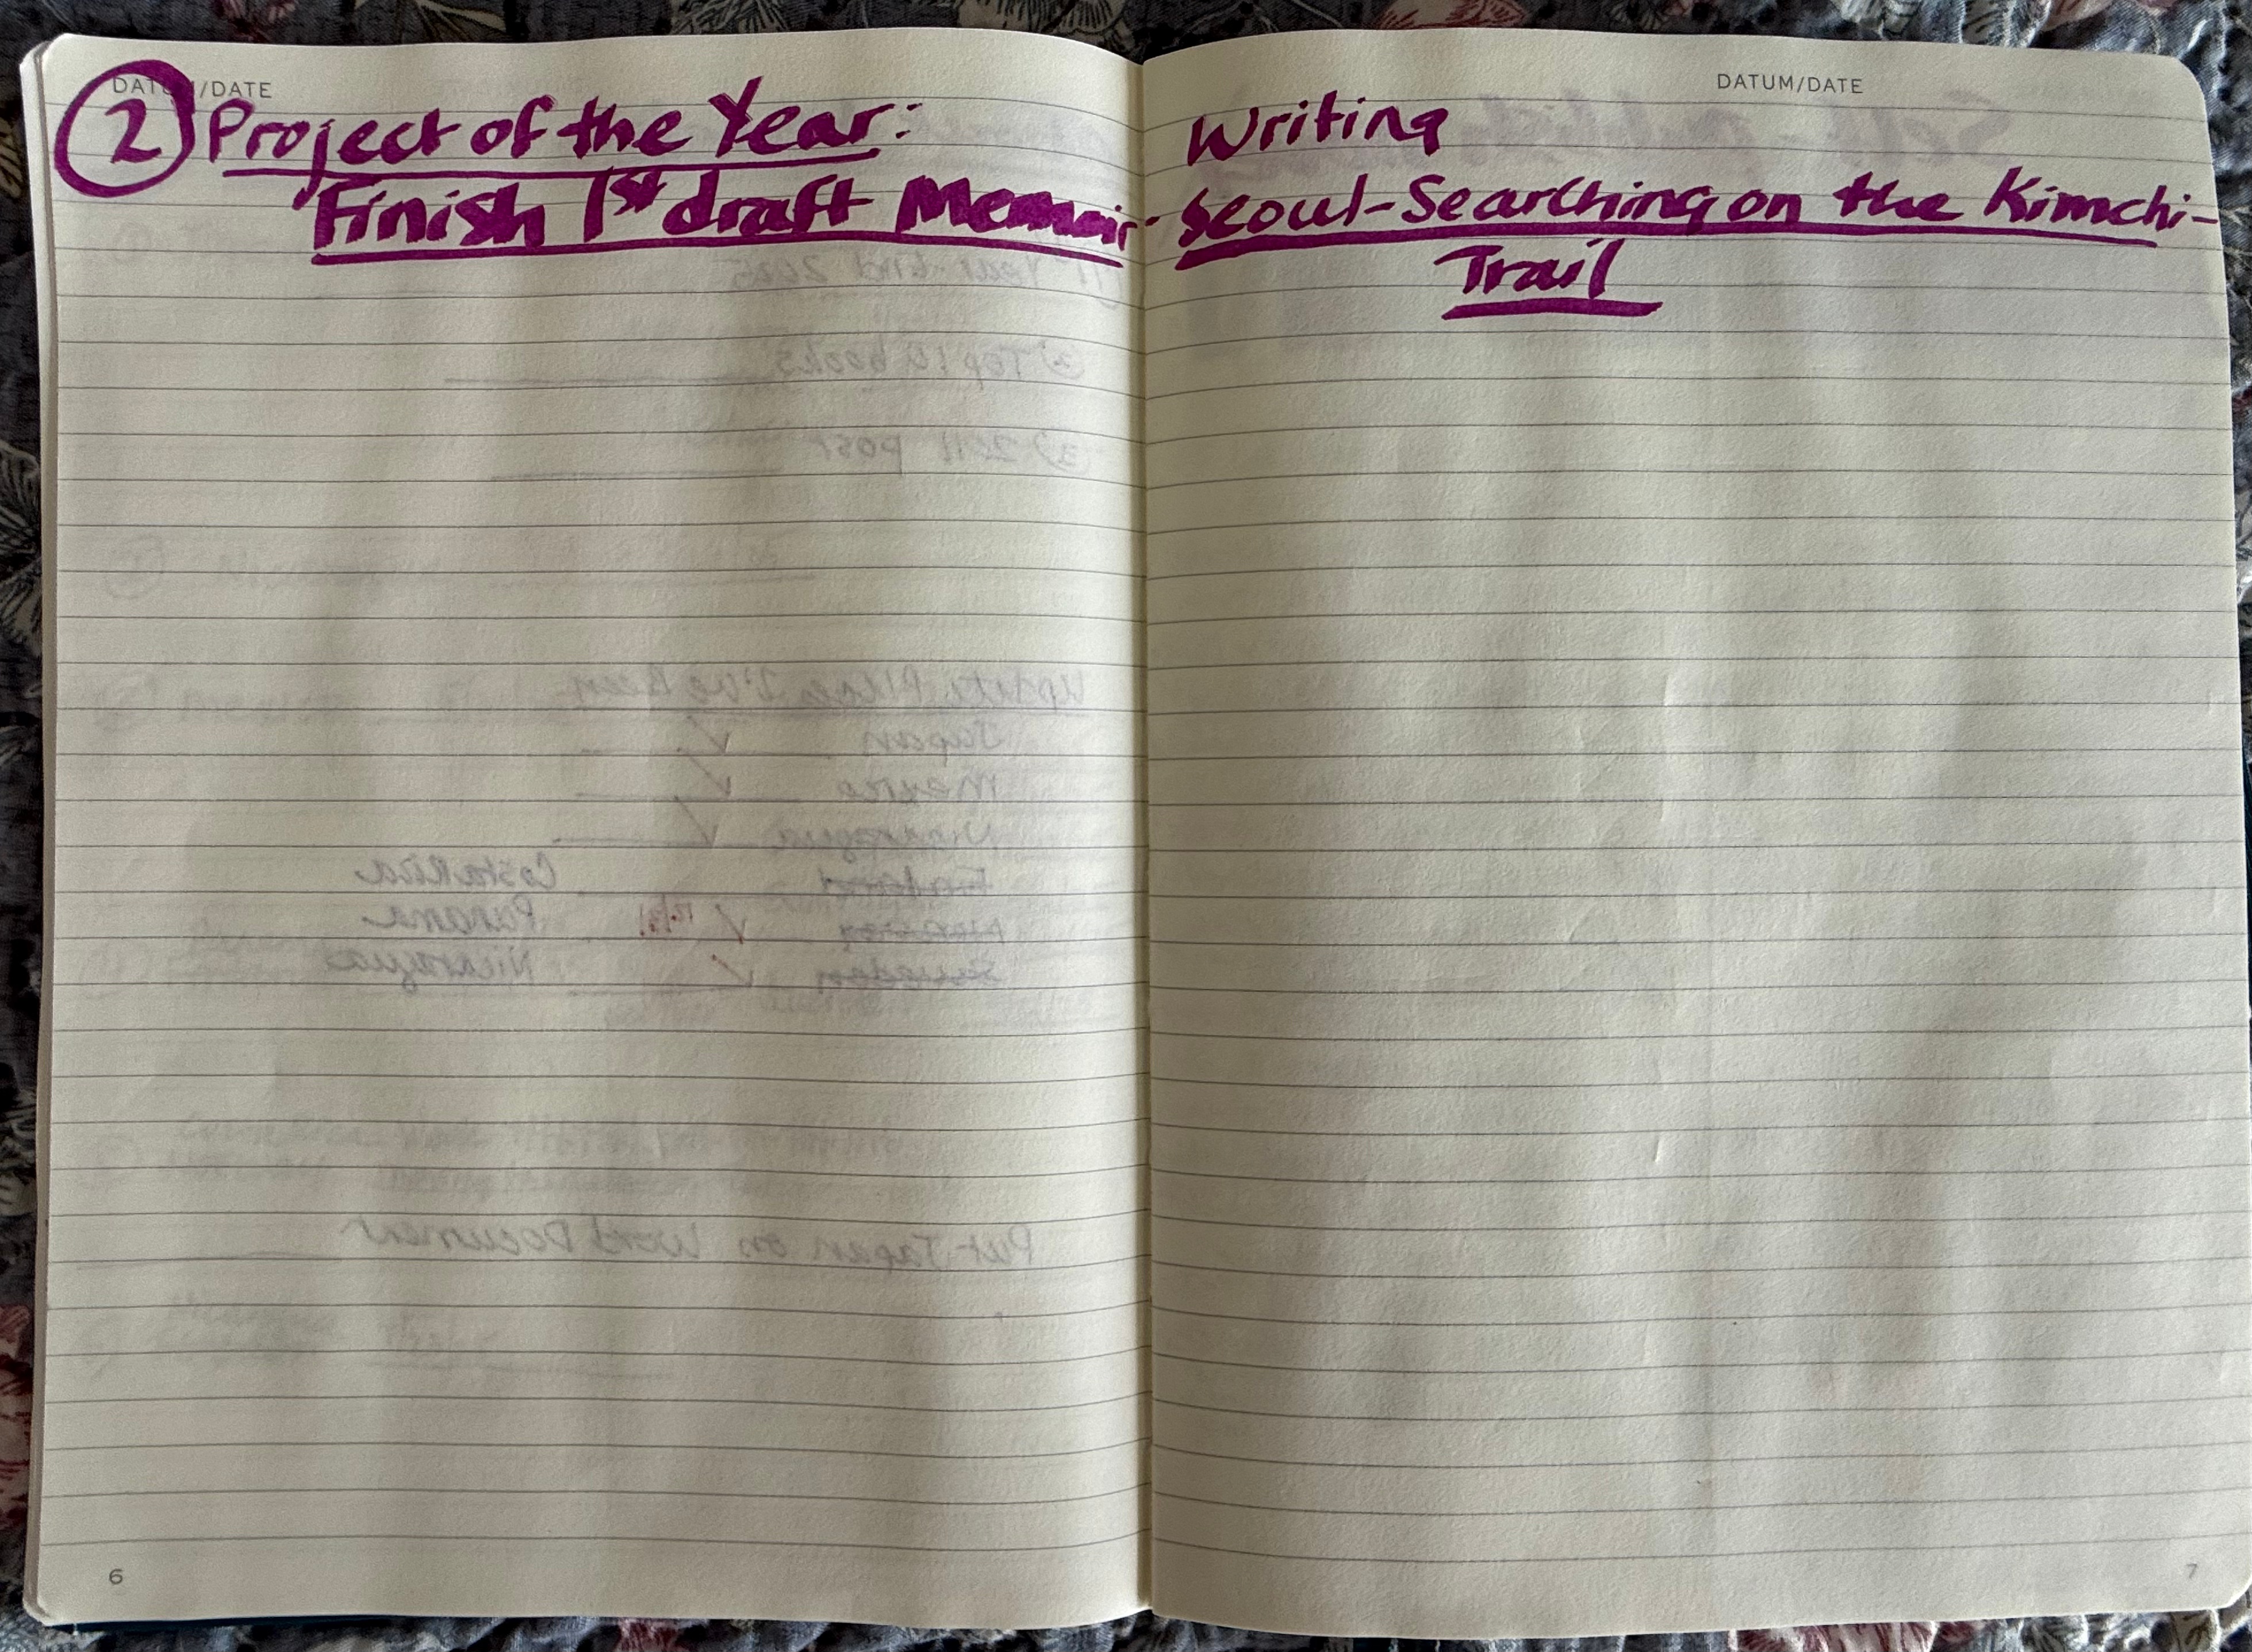 DATUM/DATE
2 Project of the Year:
Finish 1st draft Memoir-
6
DATUM/DATE
Writing
Seoul-Searching on the Kimchi-
Trail
7